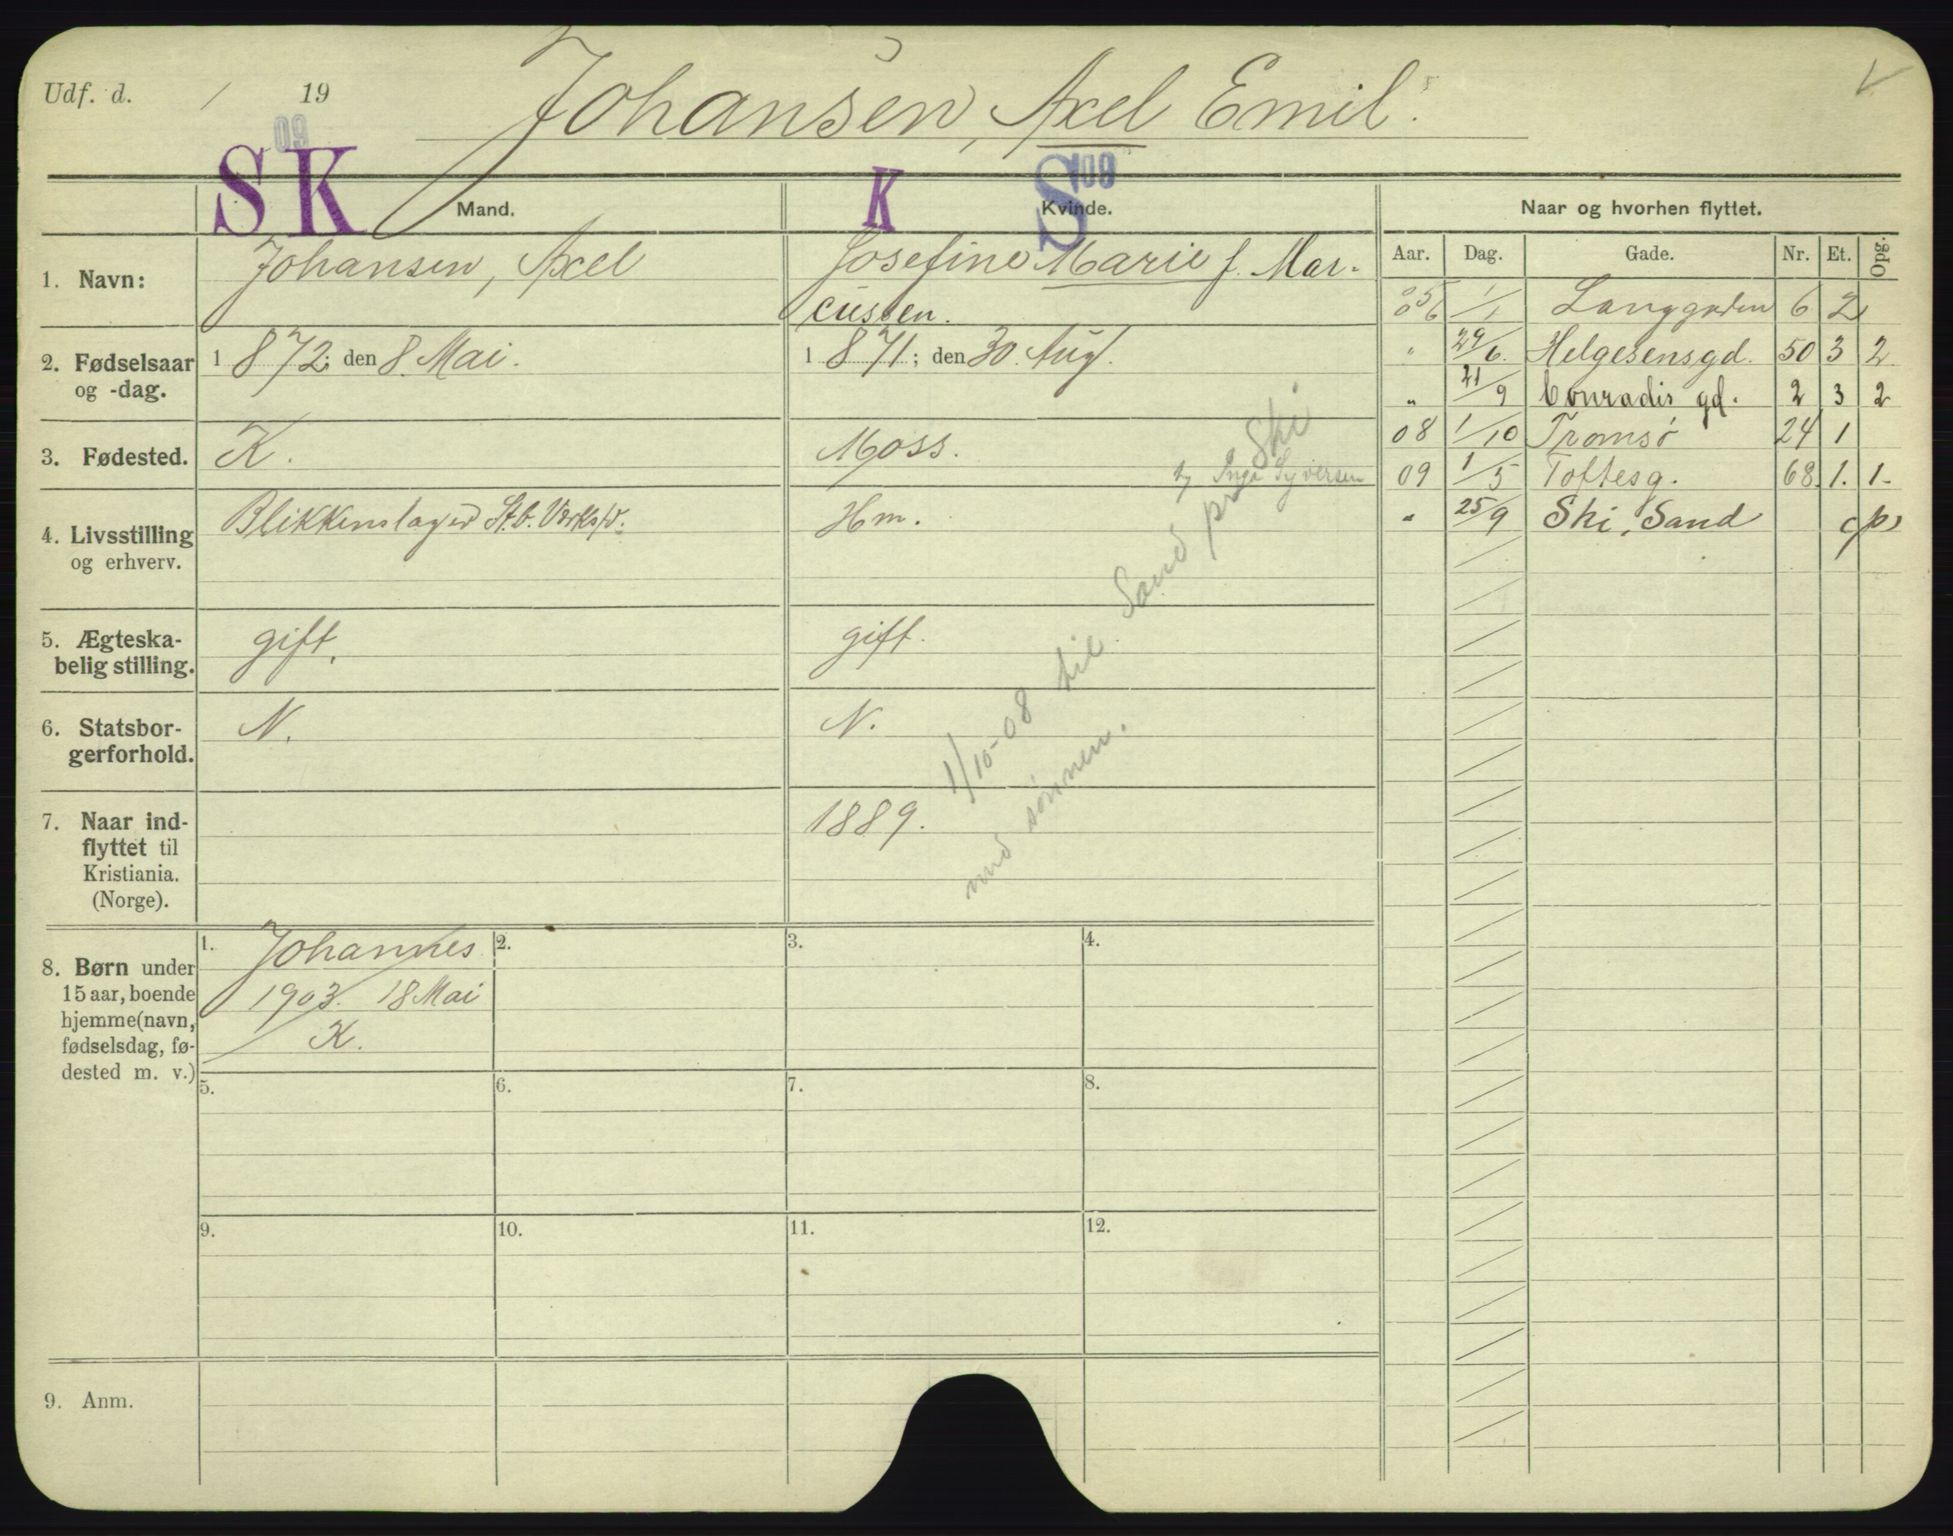 Udf. d. / 19
Johansen, Axel Emil.
09
S K
K S 08
Mand.
Kvinde.
Naar og hvorhen flyttet.
Aar. Dag. Gade. Nr. Et. Opg.
1. Navn:
Johansen, Axel
Josefine Marie f. Mar-
cussen.
2. Fødselsaar
og -dag.
1872; den 8. Mai.
1871; den 30. Aug.
3. Fødested.
K.
Moss.
4. Livsstilling
og erhverv.
Blikkenslager St. b. Værksted.
Hm.
5. Ægteska-
belig stilling.
gift.
gift.
6. Statsbor-
gerforhold.
N.
N.
7. Naar ind-
flyttet til
Kristiania.
(Norge).
1889.
1/10-08 til Sand pr Ski
med sønnen.
Inga Syversen
8. Børn under
15 aar, boende
hjemme (navn,
fødselsdag, fø-
dested m. v.)
1. Johannes
1903. 18 Mai
K.
2.
3.
4.
5.
6.
7.
8.
9.
10.
11.
12.
9. Anm.
1/1 Langgaden 6 2
" 29/6. Helgesensgd. 50 3 2
" 21/9 Conradis gd. 2 3 2
08 1/10 Tromsø 24 1
09 1/5 Toftesg. 68. 1. 1.
" 25/9 Ski, Sand